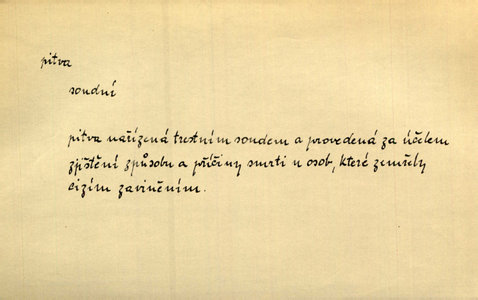 pitva
soudní
pitva nařízená trestním soudem a provedená za účelem
zjištění způsobu a příčiny smrti u osob, které zemřely
cizím zaviněním.